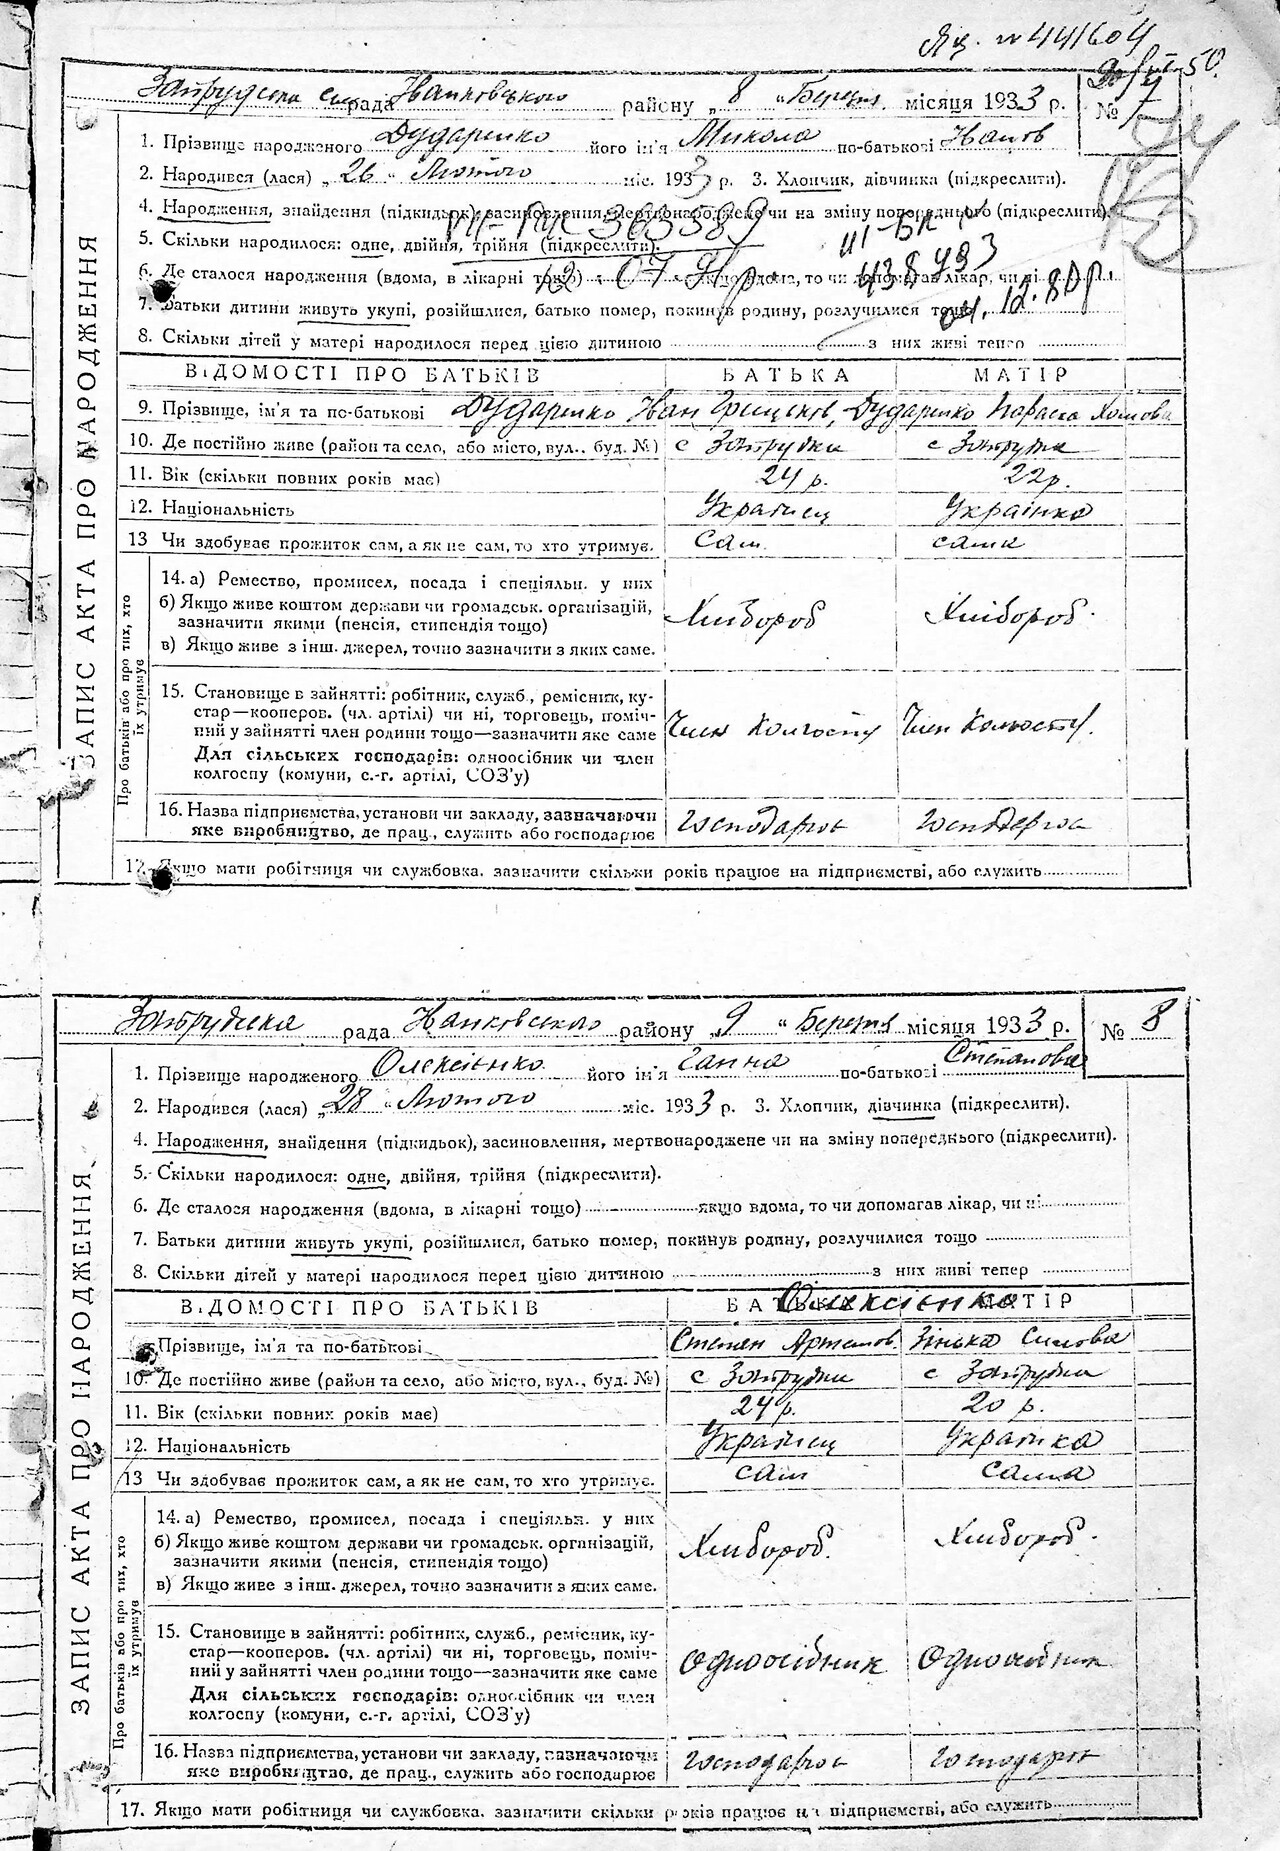 № 441604
Запрудська рада Іванковського району „8 “ Березня місяця 1933 р. № 7
1. Прізвище народженого Дударенко його ім'я Микола по-батькові Іванов
2. Народився (лася) „26 “ Лютого міс. 1933 р. 3. Хлопчик, дівчинка (підкреслити).
4. Народження, знайдення (підкидьок), засиновлення, мертвонароджене чи на зміну попереднього (підкреслити).
5. Скільки народилося: одне, двійня, трійня (підкреслити).
6. Де сталося народження (вдома, в лікарні тощо) якщо вдома, то чи допомагав лікар, чи ні
7. Батьки дитини живуть укупі, розійшлися, батько помер, покинув родину, розлучилися тощо
8. Скільки дітей у матері народилося перед цією дитиною з них живі тепер
ВІДОМОСТІ ПРО БАТЬКІВ БАТЬКА МАТІР
9. Прізвище, ім'я та по-батькові Дударенко Іван Грицьків, Дударенко Параска Хомова
10. Де постійно живе (район та село, або місто, вул., буд. №) с Запрудка с Запрудка
11. Вік (скільки повних років має) 24 р. 22 р.
12. Національність Українець Українка
13 Чи здобуває прожиток сам, а як не сам, то хто утримує. сам сама
14. а) Ремество, промисел, посада і спеціяльн. у них
б) Якщо живе коштом держави чи громадськ. організацій,
зазначити якими (пенсія, стипендія тощо) Хлібороб Хлібороб.
в) Якщо живе з інш. джерел, точно зазначити з яких саме.
15. Становище в зайнятті: робітник, служб., ремісник, ку-
стар—кооперов. (чл. артілі) чи ні, торговець, поміч-
ний у зайнятті член родини тощо—зазначити яке саме Член колгоспу Член колгоспу.
Для сільських господарів: одноосібник чи член
колгоспу (комуни, с.-г. артілі, СОЗ'у)
16. Назва підприємства, установи чи закладу, зазначаючи
яке виробництво, де прац., служить або господарює господарює господарює
17. Якщо мати робітниця чи службовка, зазначити скільки років працює на підприємстві, або служить
ЗАПИС АКТА ПРО НАРОДЖЕННЯ
Про батьків або про тих, хто
їх утримує
Запрудська рада Іванковського району „9 “ Березня місяця 1933 р. № 8
1. Прізвище народженого Олексієнко його ім'я Ганна по-батькові Степановна
2. Народився (лася) „28 “ Лютого міс. 1933 р. 3. Хлопчик, дівчинка (підкреслити).
4. Народження, знайдення (підкидьок), засиновлення, мертвонароджене чи на зміну попереднього (підкреслити).
5. Скільки народилося: одне, двійня, трійня (підкреслити).
6. Де сталося народження (вдома, в лікарні тощо) якщо вдома, то чи допомагав лікар, чи ні
7. Батьки дитини живуть укупі, розійшлися, батько помер, покинув родину, розлучилися тощо
8. Скільки дітей у матері народилося перед цією дитиною з них живі тепер
ВІДОМОСТІ ПРО БАТЬКІВ БАТЬКА МАТІР
Олексієнко
Прізвище, ім'я та по-батькові Степан Артемов. Зінька Симовна
10. Де постійно живе (район та село, або місто, вул., буд. №) с Запрудка с Запрудка
11. Вік (скільки повних років має) 24 р. 20 р.
12. Національність Українец Українка
13 Чи здобуває прожиток сам, а як не сам, то хто утримує. сам сама
14. а) Ремество, промисел, посада і спеціяльн. у них
б) Якщо живе коштом держави чи громадськ. організацій,
зазначити якими (пенсія, стипендія тощо) Хлібороб. Хлібороб.
в) Якщо живе з інш. джерел, точно зазначити з яких саме.
15. Становище в зайнятті: робітник, служб., ремісник, ку-
стар—кооперов. (чл. артілі) чи ні, торговець, поміч-
ний у зайнятті член родини тощо—зазначити яке саме одноосібник одноосібник
Для сільських господарів: одноосібник чи член
колгоспу (комуни, с.-г. артілі, СОЗ'у)
16. Назва підприємства, установи чи закладу, зазначаючи
яке виробництво, де прац., служить або господарює господарює господарює
17. Якщо мати робітниця чи службовка, зазначити скільки років працює на підприємстві, або служить
ЗАПИС АКТА ПРО НАРОДЖЕННЯ
Про батьків або про тих, хто
їх утримує